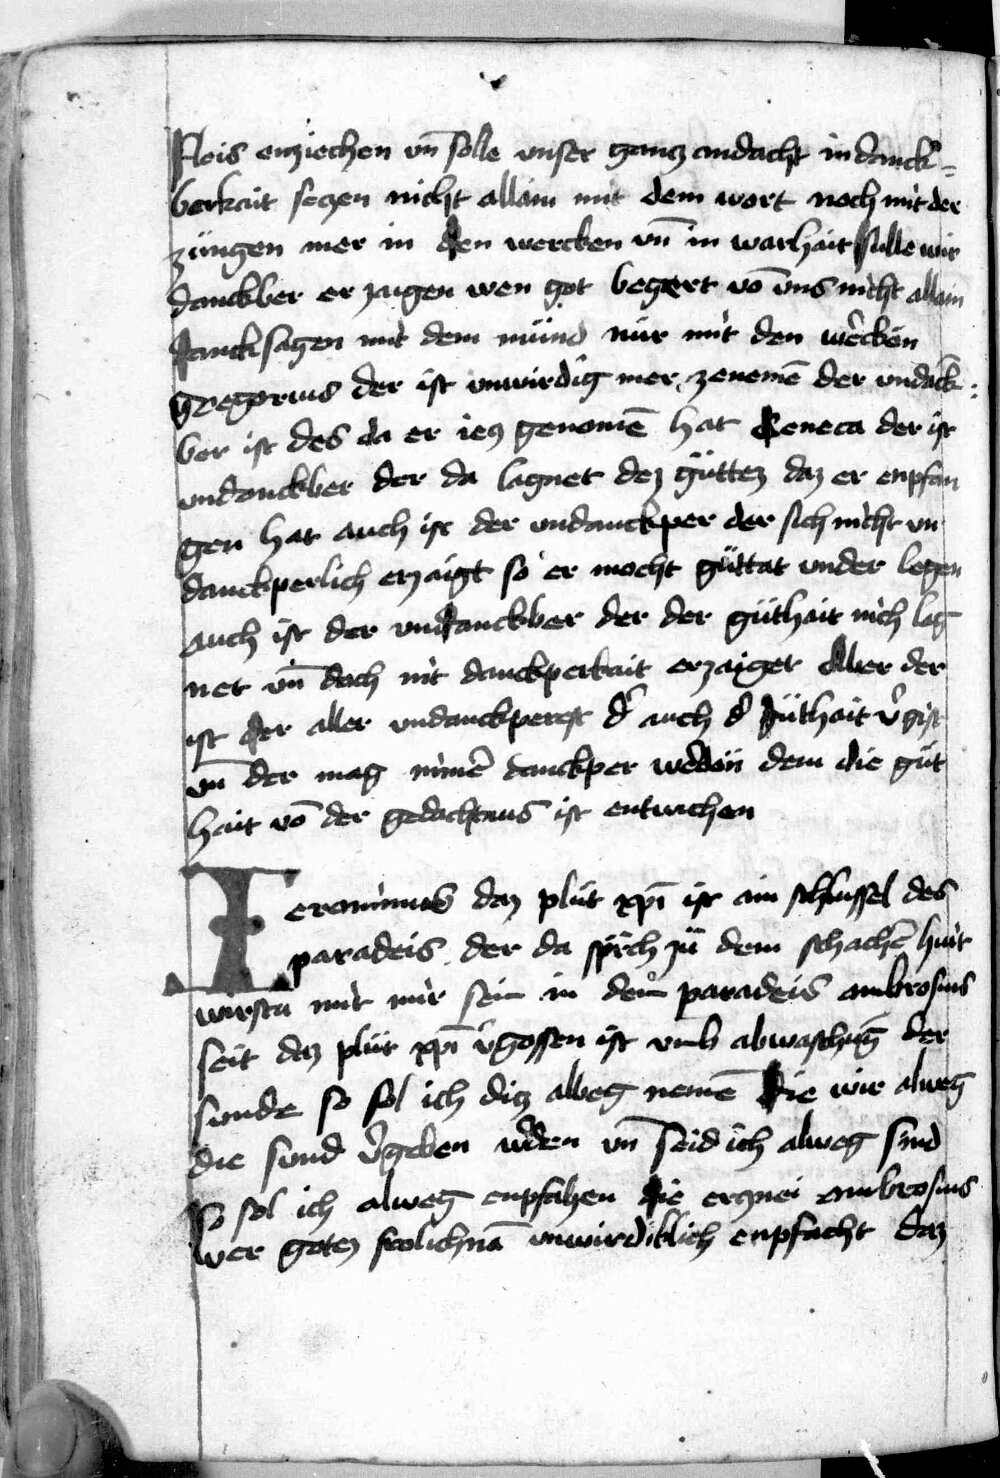 fleis enziechen vn̄ solle vnser gancz andacht in danck=
berkait seczen nicht allain mit dem wort noch mit der
züngen mer in den wercken vn̄ in warhait sulle wir
danckber er zaigen wen got begert vō vns nicht allain
dancksagen mit dem münd nür mit den wercken
Gregorius der ist vnwirdig mer zenemē der vndāck
ber ist des da er iecz genomē hat Seneca der ist
vndanckber der da lagnet dez güttez daz er enpfan
gen hat auch ist der vndanckper der sich nicht vn
danckperlich erzaigt so er mocht güttat vnder legen
auch ist der vndanckber der der güthait nich lag
net vn̄ doch nit danckperkait erzaiget Aber der
ist der aller vndanckperest d' auch d' güthait v'gist
vn̄ der mag nimē danckper werden dem die güt
hait vō der gedachtnus ist entwichen
Ieronimus daz plüt xp̄i ist ain schlussel des
paradeis der da sprich zü dem schachē hüt
wirstu mit mir sein in dem paradeis ambrosius
seit daz plüt xp̄i v'gossen ist vmb abwaschūg der
sunde so sol ich dicz alweg nemē die wir alweg
die sund v'geben werden vn̄ seid ich alweg sünd
so sol ich alweg enpfahen die ercznei ambrosius
wer gotez frolichnā vnwirdiklich enpfacht daz